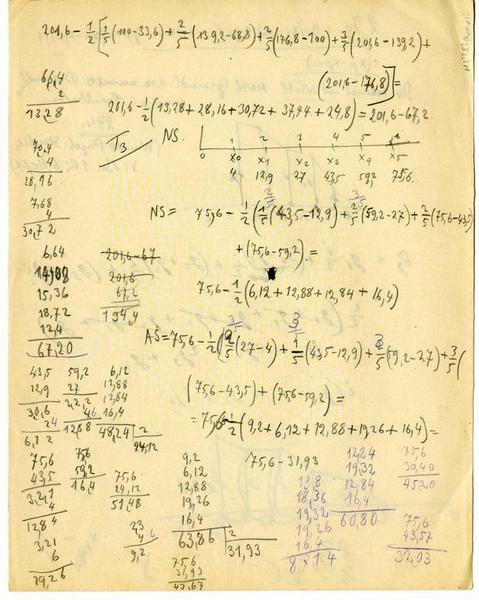 201,6 - 1/2 [1/5 (100-33,6) + 2/5 (139,2-68,8) + 2/5 (176,8-100) + 3/5 (201,6-139,2) +
(201,6-176,8)] =
66,4
2
13,28
201,6 - 1/2 (13,28 + 28,16 + 30,72 + 37,44 + 24,8) = 201,6 - 67,2
T3 NS.
1 2 3 4 5 6
0 x0 x1 x2 x3 x4 x5
4 12,9 27 43,5 59,2 75,6
70,4
4
28,16
7,68
4
30,72
NS = 75,6 - 1/2 (1/5 (43,5-12,9) + 2/5 (59,2-27) + 2/5 (75,6-43,5)
+ (75,6-59,2). =
6,64
14,08
15,36
18,72
12,4
67,20
201,6-67
201,6
67,2
134,4
75,6 - 1/2 (6,12 + 12,88 + 12,84 + 16,4)
AS = 75,6 - 1/2 (2/5 (27-4) + 1/5 (43,5-12,9) + 2/5 (59,2-27) + 3/5 (
(75,6-43,5) + (75,6-59,2) =
= 75,6 - 1/2 (9,2 + 6,12 + 12,88 + 19,26 + 16,4) =
43,5
12,9
30,6
6,12
59,2
27
12,88
6,12
12,88
12,84
16,4
48,24 | 2
24,12
75,6
43,5
4
12,84
3,21
6
19,26
75,6
59,2
16,4
75,6
24,12
51,48
23
4
9,2
9,2
6,12
12,88
19,26
16,4
63,86 | 2
31,93
75,6
31,93
43,67
75,6 - 31,93
13,8
18,36
19,32
19,26
16,4
12,24
19,32
12,84
16,4
60,80
75,6
30,40
45,20
75,6
43,57
32,03